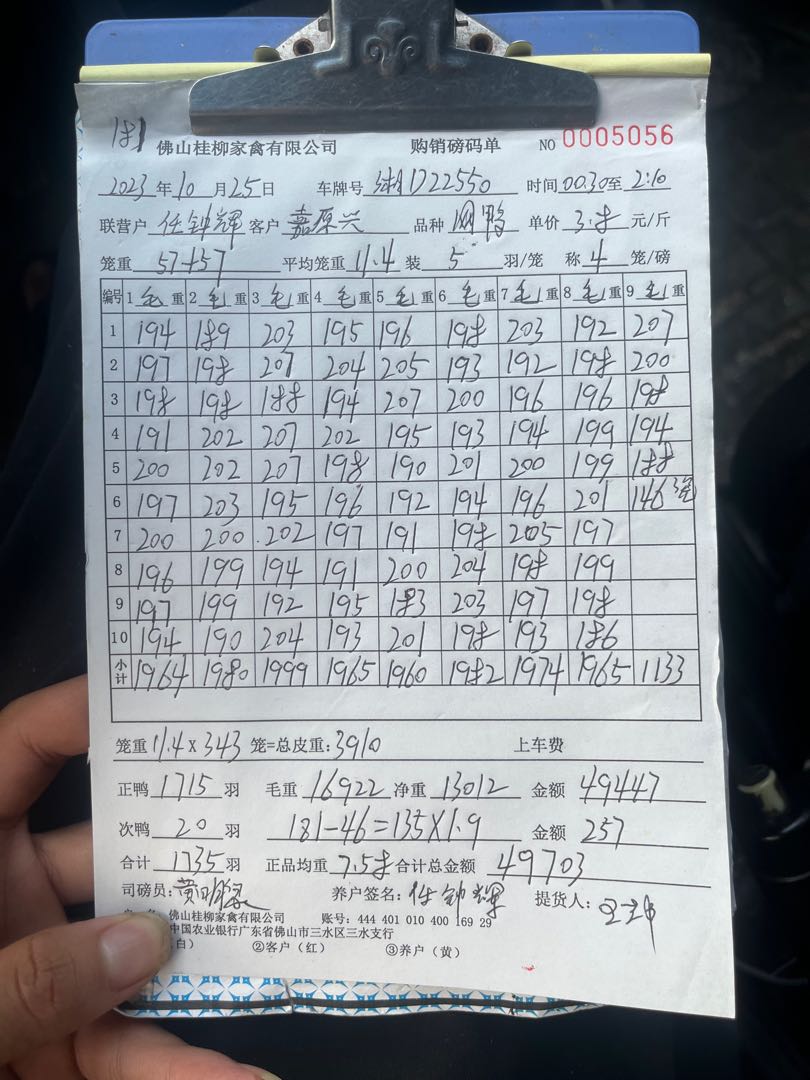 181
佛山桂柳家禽有限公司 购销磅码单 NO 0005056
2023年10月25日 车牌号 湘D22550 时间00.30至2:10
联营户 任钟辉 客户 嘉原兴 品种 网鸭 单价 3.8 元/斤
笼重 57+57 平均笼重 11.4 装 5 羽/笼 称 4 笼/磅
编号 1 毛 重 2 毛 重 3 毛 重 4 毛 重 5 毛 重 6 毛 重 7 毛 重 8 毛 重 9 毛 重
1 194 189 203 195 196 198 203 192 207
2 197 198 207 204 205 193 192 198 200
3 198 198 188 194 207 200 196 196 198
4 191 202 207 202 195 193 194 199 194
5 200 202 207 198 190 201 200 199 188
6 197 203 195 196 192 194 196 201 146 3笼
7 200 200 202 197 191 198 205 197
8 196 199 194 191 200 204 198 199
9 197 199 192 195 183 203 197 198
10 194 190 204 193 201 198 193 186
小计 1964 1980 1999 1965 1960 1982 1974 1965 1133
笼重 11.4 X 343 笼=总皮重: 3910 上车费
正鸭 1715 羽 毛重 16922 净重 13012 金额 49447
次鸭 20 羽 181-46=135X1.9 金额 257
合计 1735 羽 正品均重 7.58 合计总金额 49703
司磅员: 养户签名: 任钟辉 提货人:
佛山桂柳家禽有限公司 账号: 444 401 010 400 169 29
中国农业银行广东省佛山市三水区三水支行
白) ②客户(红) ③养户(黄)